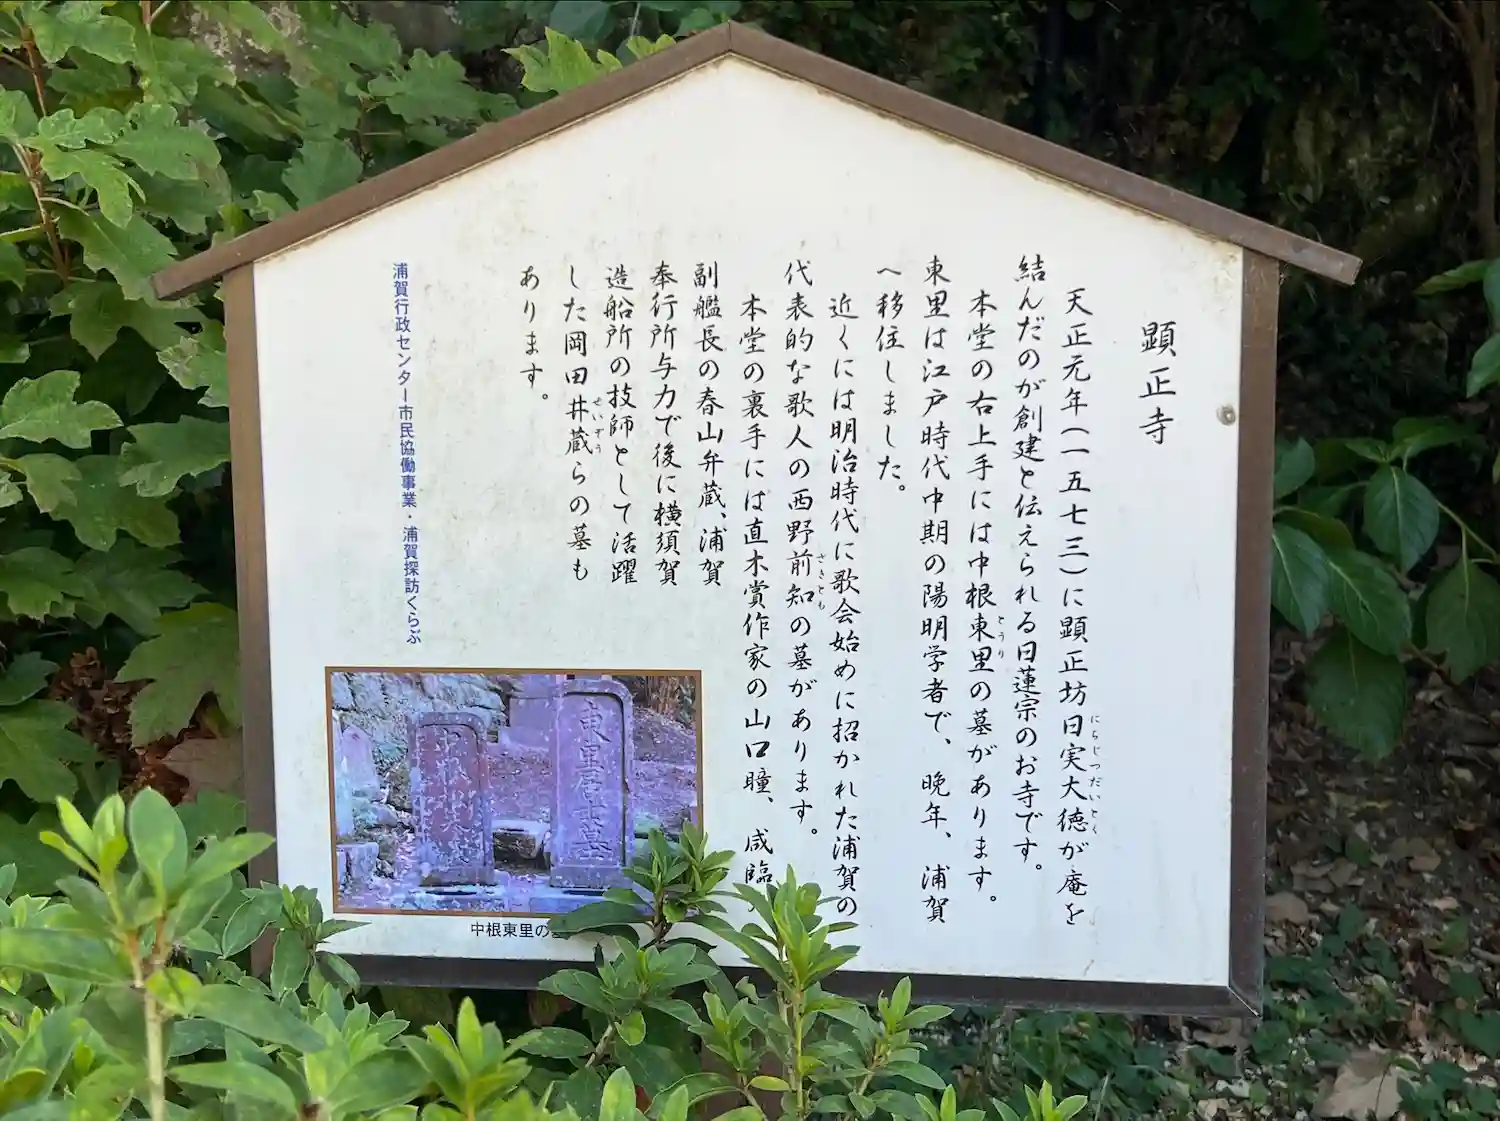 顕正寺
天正元年(一五七三)に顕正坊日実大徳が庵を
にちじつだいとく
結んだのが創建と伝えられる日蓮宗のお寺です。
本堂の右上手には中根東里の墓があります。
とうり
東里は江戸時代中期の陽明学者で、晩年、浦賀
へ移住しました。
近くには明治時代に歌会始めに招かれた浦賀の
代表的な歌人の西野前知の墓があります。
さきとも
本堂の裏手には直木賞作家の山口瞳、咸臨
副艦長の春山弁蔵、浦賀
奉行所与力で後に横須賀
造船所の技師として活躍
した岡田井蔵らの墓も
せいぞう
あります。
浦賀行政センター市民協働事業・浦賀探訪くらぶ
東里居士墓
中根東里の